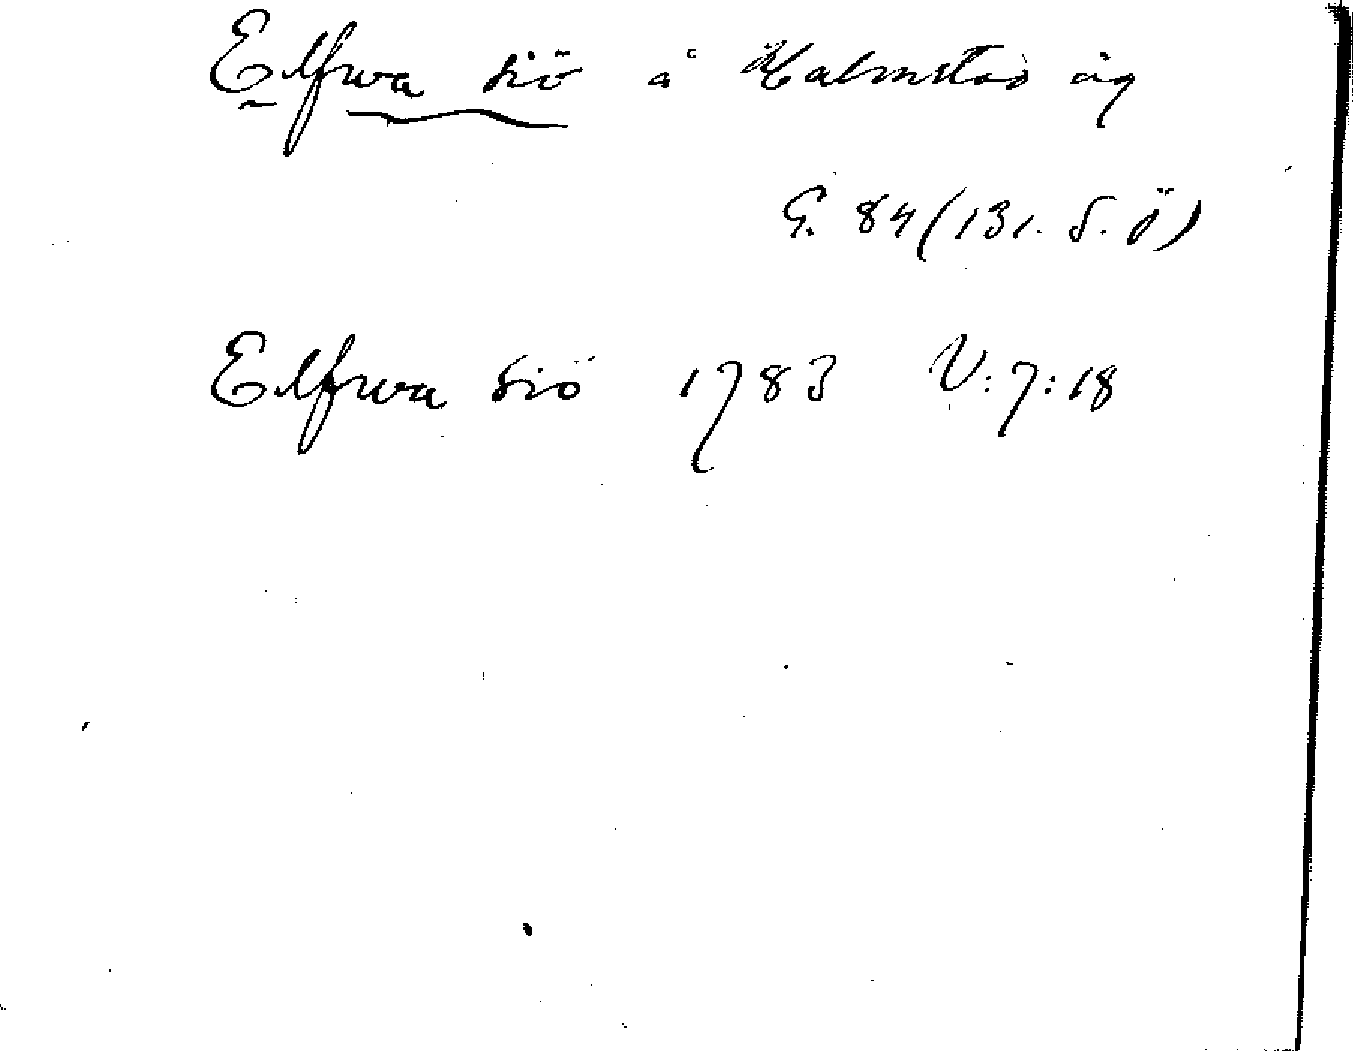 Elfwa siö å Halmstad äg
G. 84 (131. S. ö)
Elfwa siö 1783 V:7:18